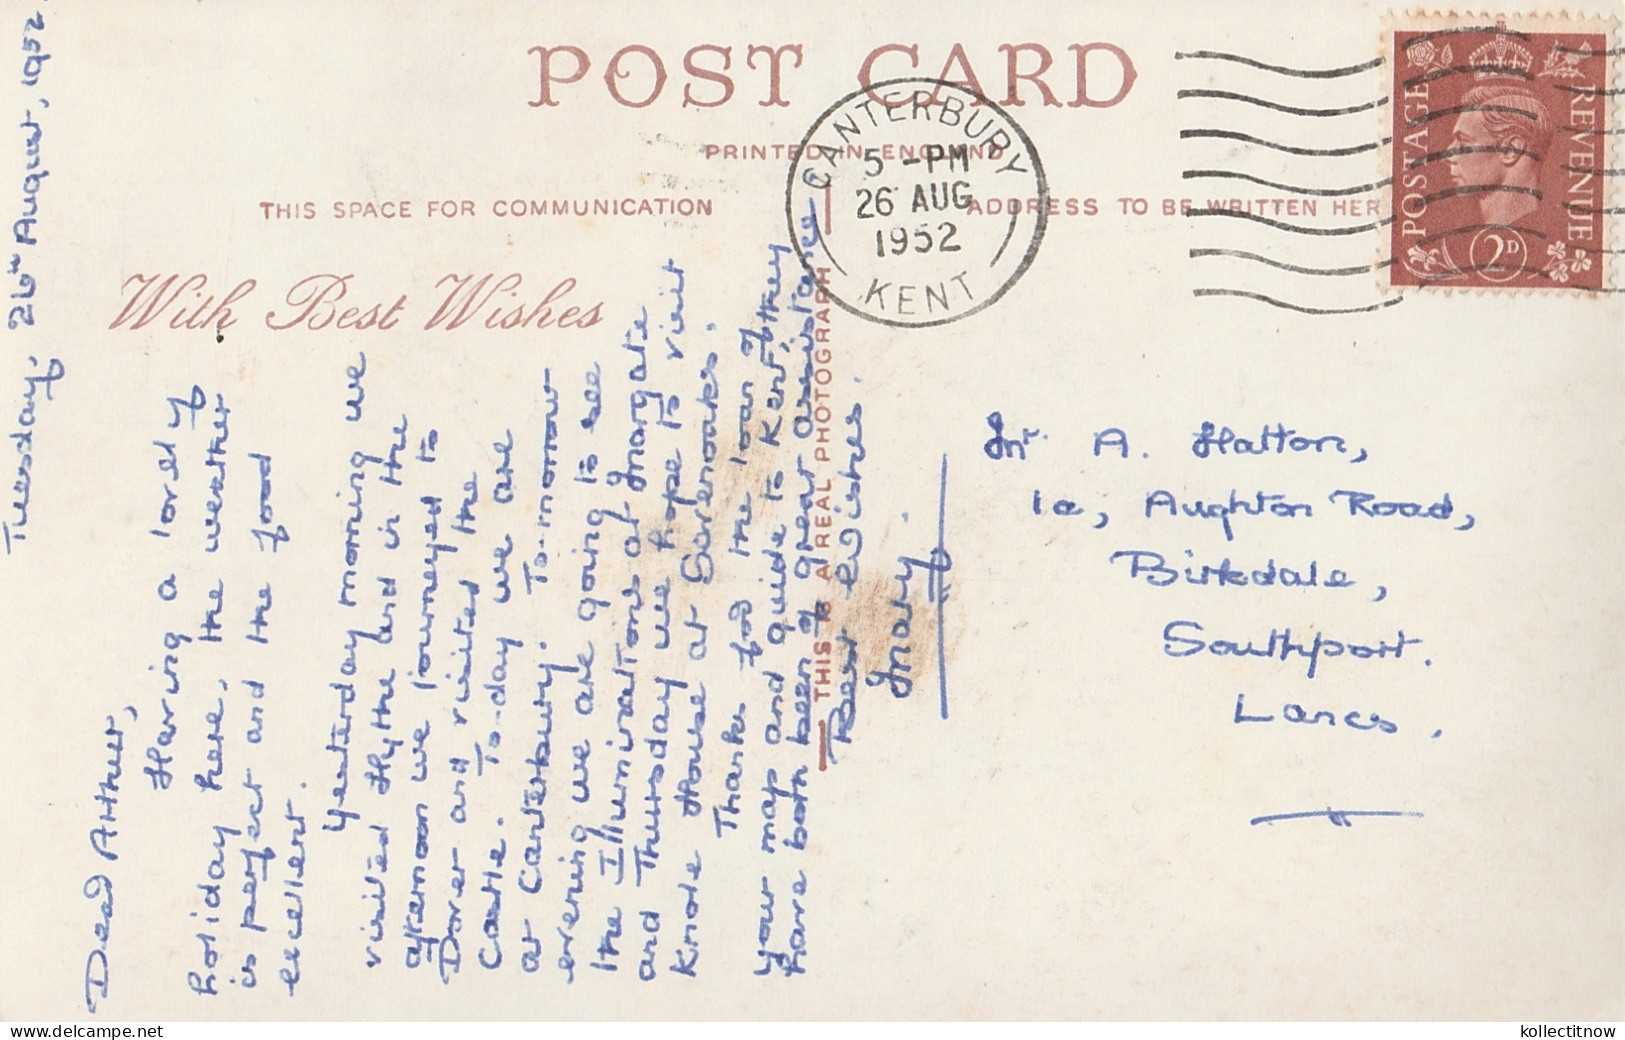 POST CARD
PRINTED IN ENGLAND
THIS SPACE FOR COMMUNICATION
ADDRESS TO BE WRITTEN HER
With Best Wishes
THIS IS A REAL PHOTOGRAPH
CANTERBURY
5 - PM
26 AUG
1952
KENT
POSTAGE
REVENUE
2D
Tuesday, 26th August, 1952.
Dear Arthur,
Having a lovely
holiday here, the weather
is perfect and the food
excellent.
Yesterday morning we
visited Hythe and in the
afternoon we journeyed to
Dover and visited the
Castle. To-day we are
at Canterbury. To-morrow
evening we are going to see
the Illuminations at Margate
and Thursday we hope to visit
Knole House at Sevenoaks.
Thanks for the loan of
your map and guide to Kent, they
have both been of great assistance
Best Wishes.
Mary.
Mr. A. Hatton,
1a, Aughton Road,
Birkdale,
Southport.
Lancs.
delcampe.net
kollectitnow